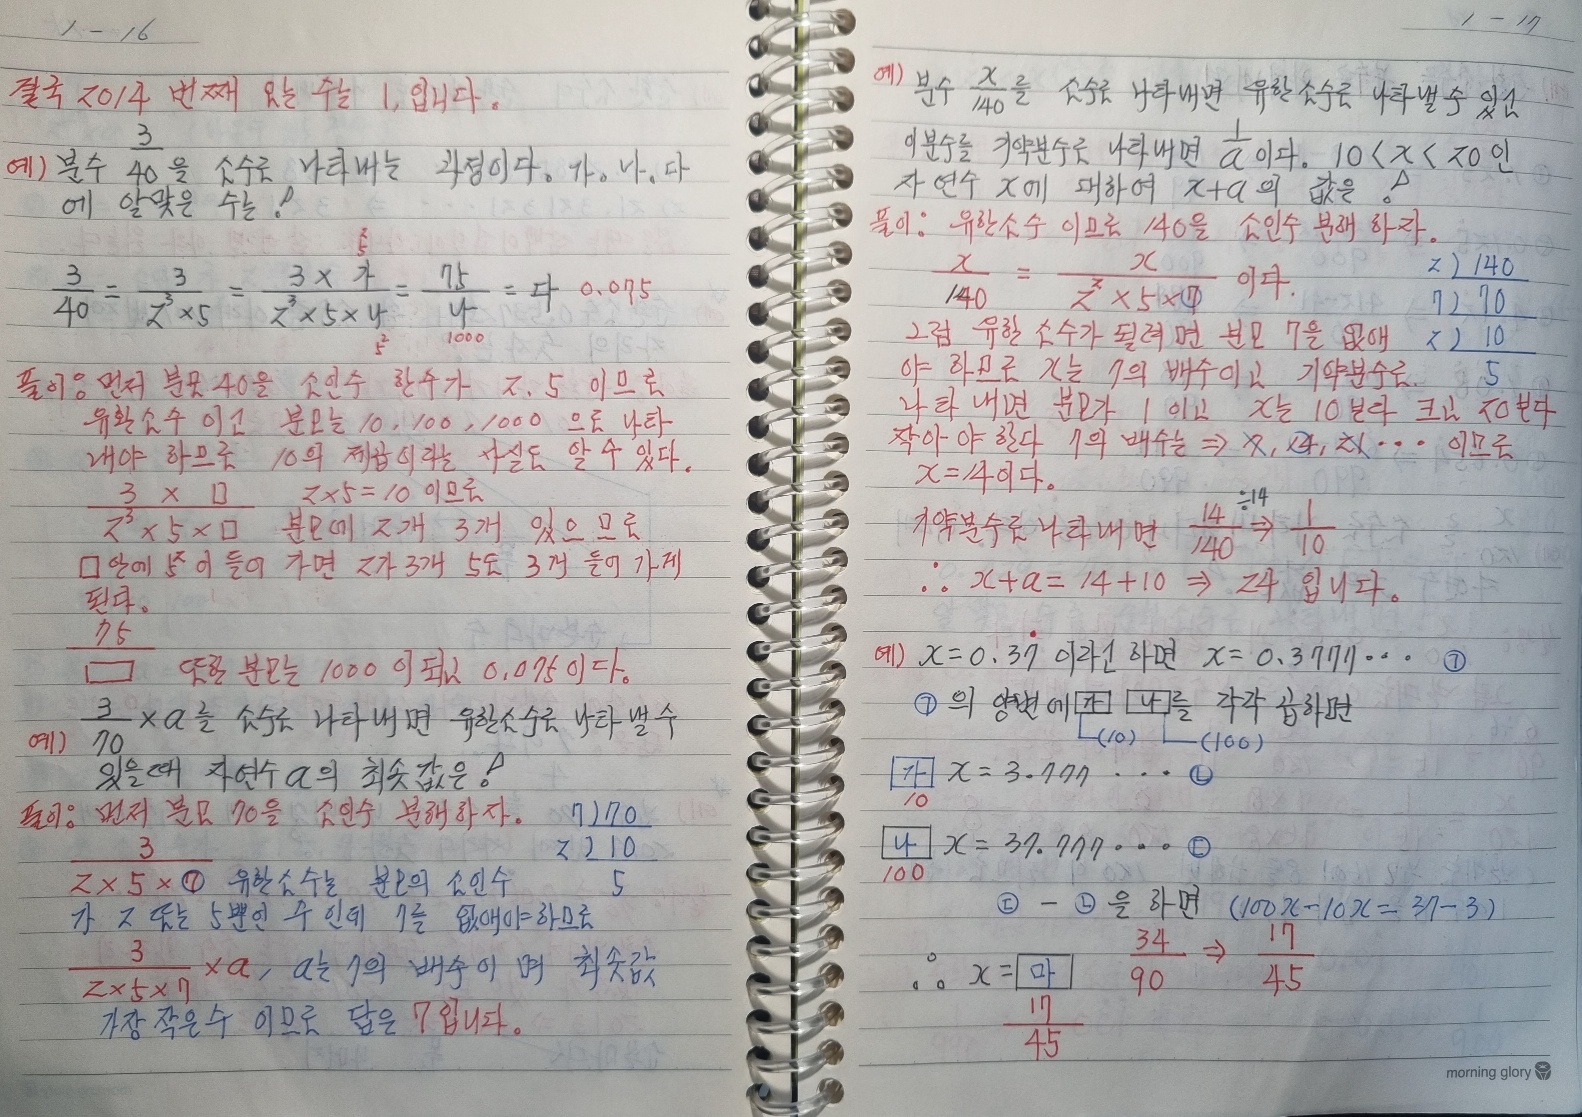 1 - 16
결국 2014 번째 오는 수는 1, 입니다.
예) 분수 3/40을 소수로 나타내는 과정이다. 가. 나. 다
에 알맞은 수는?
5²
3/40 = 3/2³×5 = 3 × 가/2³×5×나 = 75/나 = 다 0.075
5² 1000
풀이: 먼저 분모 40을 소인수 한수가 2. 5 이므로
유한소수 이고 분모는 10, 100, 1000 으로 나타
내야 하므로 10의 제곱이라는 사실도 알 수 있다.
3 × □/2³×5×□ 2×5=10 이므로
분모에 2개 3개 있으므로
□안에 5² 이 들어 가면 2가 3개 5도 3개 들어 가게
된다.
75/□ 또한 분모는 1000 이 되고 0.075 이다.
예) 3/70 × a를 소수로 나타내면 유한소수로 나타낼 수
있을때 자연수 a의 최솟값은?
풀이: 먼저 분모 70을 소인수 분해하자. 7)70
2)10
5
3/2×5×7 유한소수는 분모의 소인수
가 2 또는 5뿐인 수 인데 7를 없애야하므로
3/2×5×7 ×a, a는 7의 배수이며 최솟값
가장 작은수 이므로 답은 7입니다.
1 - 17
예) 분수 x/140를 소수로 나타내면 유한소수로 나타낼 수 있고
이분수를 기약분수로 나타내면 1/a이다. 10<x<20인
자연수 x에 대하여 x+a의 값은?
풀이: 유한소수 이므로 140을 소인수 분해 하자.
x/140 = x/2²×5×7 이다. 2)140
7)70
그럼 유한 소수가 될려면 분모 7을 없애 2)10
야 하므로 x는 7의 배수이고 기약분수로 5
나타내면 분모가 1 이고 x는 10보다 크고 20보다
작아야 한다 7의 배수는 ⇒ 7, 14, 21 ··· 이므로
x=14이다.
기약분수로 나타내면 14/140 ÷14 ⇒ 1/10
∴ x+a=14+10 ⇒ 24 입니다.
예) x=0.37̇ 이라고 하면 x=0.3777··· ㉠
㉠의 양변에 가 나를 각각 곱하면
(10) (100)
가 x=3.777 ··· ㉡
10
나 x=37.777··· ㉢
100
㉢ - ㉡ 을 하면 (100x-10x=37-3)
∴ x= 마 34/90 ⇒ 17/45
17/45
morning glory